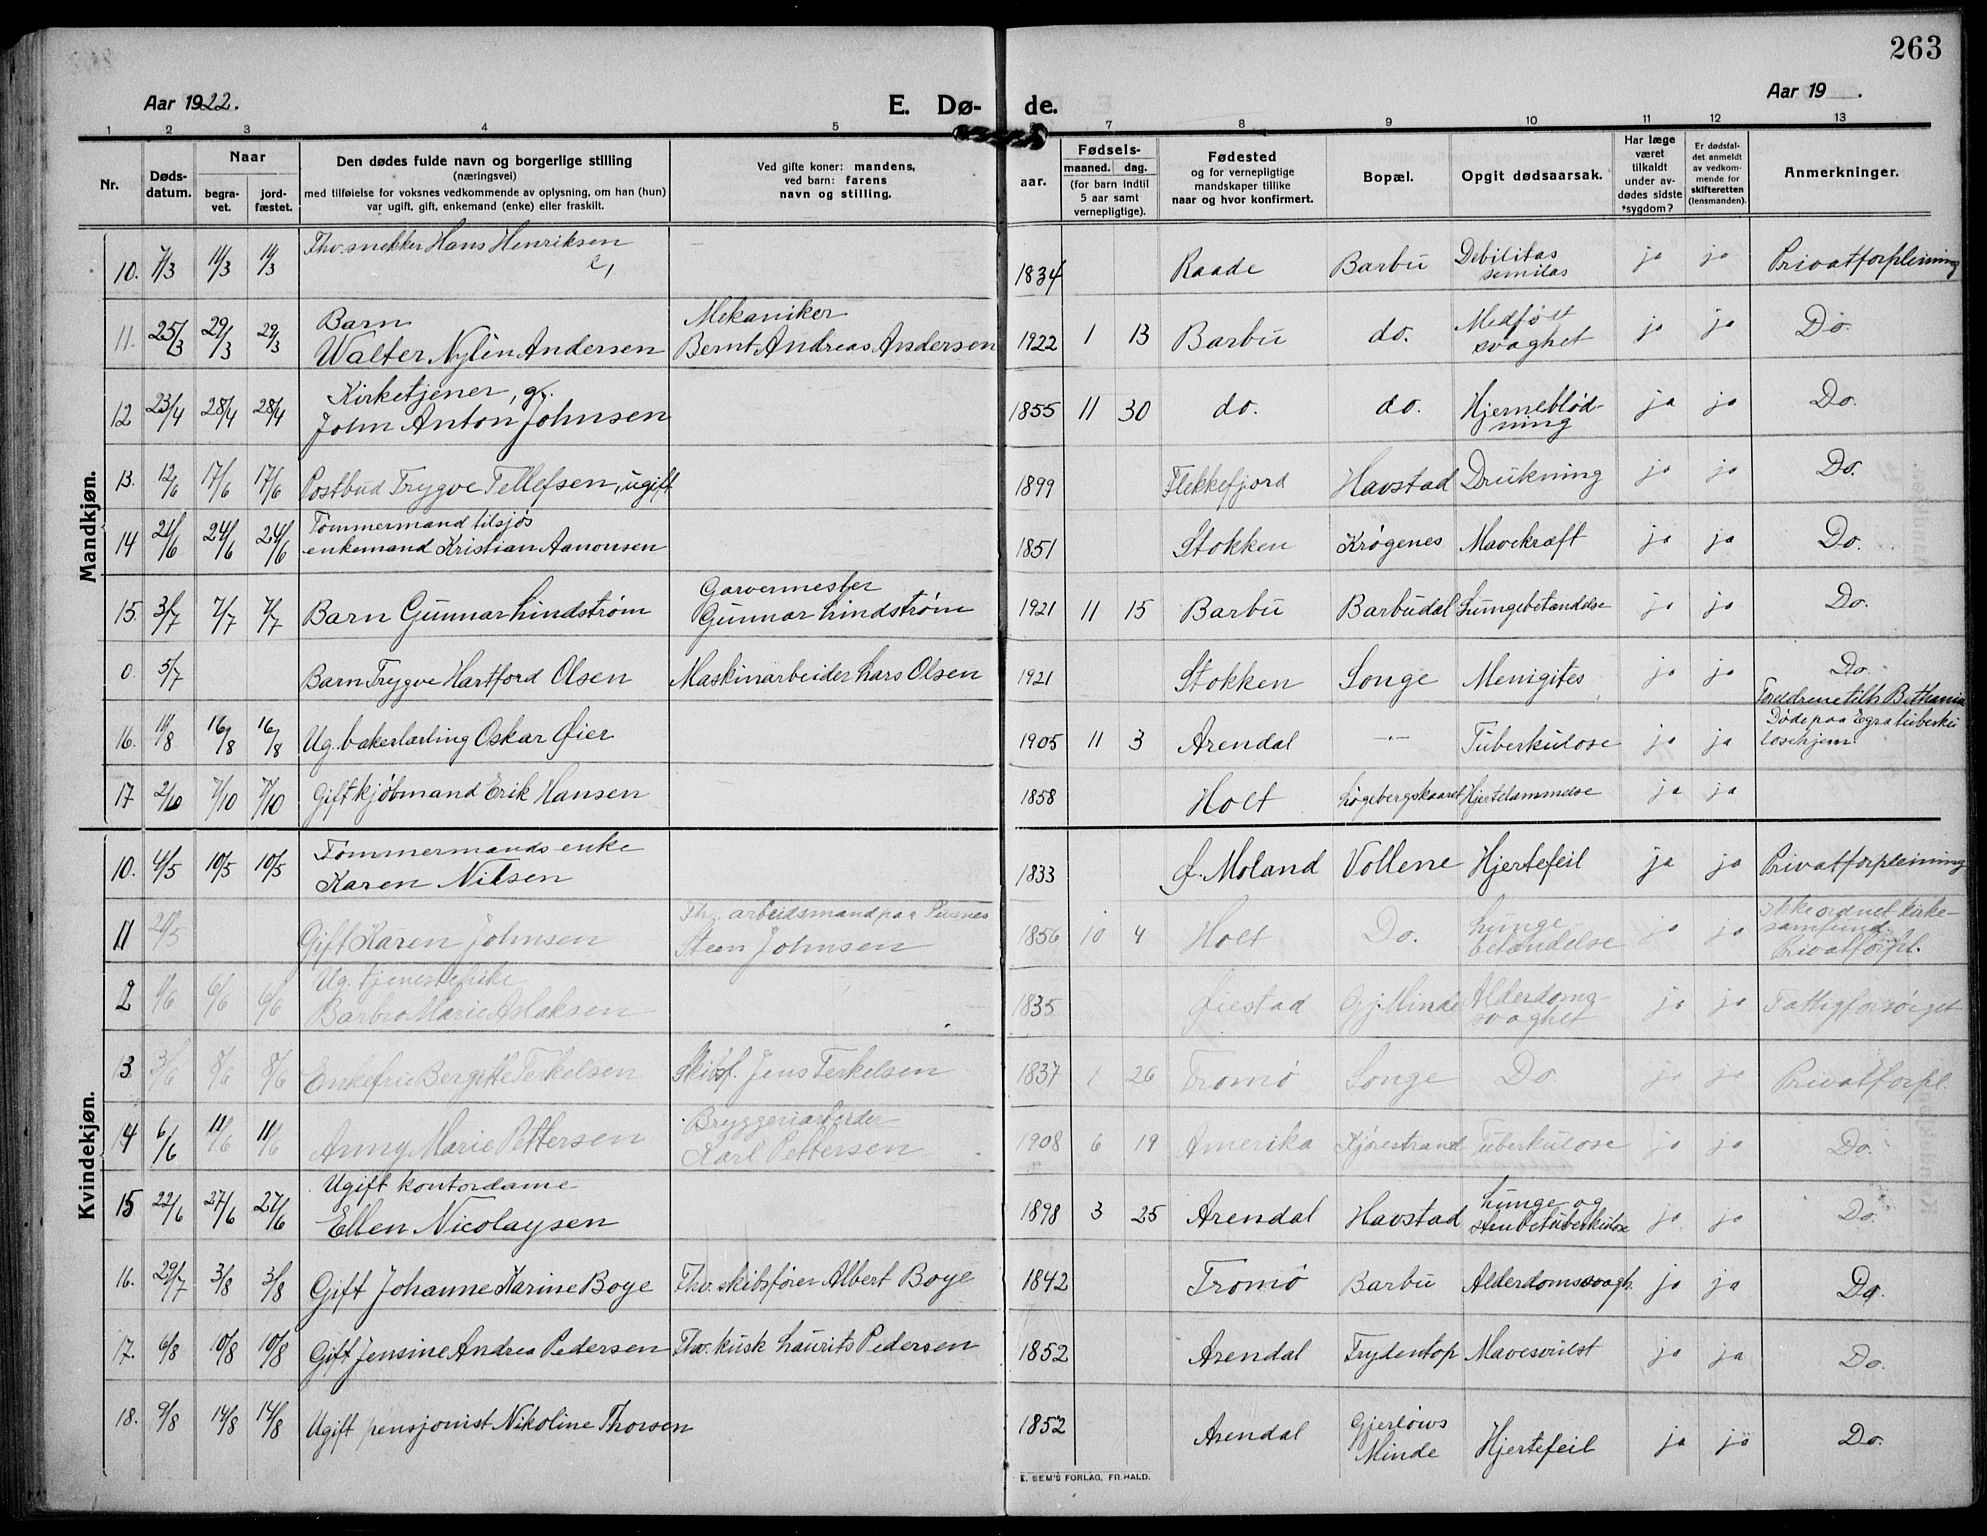 263
Aar 1922.
E. Dø- de.
Aar 19 .
1 2 3 4 5 7 8 9 10 11 12 13
Nr.
Døds-
datum.
Naar
begra-
vet.
jord-
fæstet.
Den dødes fulde navn og borgerlige stilling
(næringsvei)
med tilføielse for voksnes vedkommende av oplysning, om han (hun)
var ugift, gift, enkemand (enke) eller fraskilt.
Ved gifte koner: mandens,
ved barn: farens
navn og stilling.
aar.
Fødsels-
maaned. dag.
(for barn indtil
5 aar samt
vernepligtige).
Fødested
og for vernepligtige
mandskaper tillike
naar og hvor konfirmert.
Bopæl.
Opgit dødsaarsak.
Har læge
været
tilkaldt
under av-
dødes sidste
*sygdom?
Er dødsfal-
det anmeldt
av vedkom-
mende for
skifteretten
(lensmanden).
Anmerkninger.
Mandkjøn.
10. 7/3 11/3 11/3 Fhv. snekker Hans Henriksen 1834 Raade Barbu Debilitas
ja ja Privatforpleining
11. 25/3 29/3 29/3 Barn
Walter Nylén Andersen Mekaniker
Bernt Andreas Andersen 1922 1 13 Barbu do. Medføt
svaghet ja ja Do.
12 23/4 28/4 28/4 Kirketjener, g.
John Anton Johnsen 1855 11 30 do. do. Hjerneblød-
ning ja ja Do.
13. 12/6 17/6 17/6 Postbud Trygve Tellefsen, ugift 1899 Flekkefjord Havstad Drukning ja ja Do.
14 21/6 24/6 24/6 Tømmermand tilsjøs
enkemand Kristian Aanonsen 1851 Stokken Krøgenes Mavekræft ja ja Do.
15. 3/7 7/7 7/7 Barn Gunnar Lindstrøm Garvermester
Gunnar Lindstrøm 1921 11 15 Barbu Barbudal Lungebetændelse ja ja Do.
0. 5/7 Barn Trygve Hartford Olsen Maskinarbeider Lars Olsen 1921 Stokken Longe Menigites ja ja Do.
Foreldrene tilh. Bethania
16. 11/8 16/8 16/8 Ug. bakerlærling Oskar Øier 1905 11 3 Arendal -"- Tuberkulose ja ja Døde paa Egra tuberku
losehjem.
17 2/10 7/10 7/10 Gift kjøbmand Erik Hansen 1858 Holt Løgebergskaaret Hjertelammelse ja ja
Kvindekjøn.
10. 4/5 10/5 10/5 Tømmermands enke
Karen Nilsen 1833 Ø. Moland Vollene Hjertefeil ja ja Privatforpleining
11 29/5 Gift Karen Johnsen Fhv. arbeidsmand paa Pusnes
Steen Johnsen 1856 10 4 Holt Do. Lunge
betændelse ja ja Ikke ordnet kirke-
samfund.
Privatforpl.
2 1/6 6/6 6/6 Ug. tjenestepike
Barbro Marie Aslaksen 1835 Øiestad Gj. Minde Alderdoms-
svaghet ja ja Fattigforsørget
13 3/6 8/6 8/6 Enkefru Bergitte Terkelsen Skibsf. Jens Terkelsen 1837 1 26 Tromø Longe Do ja ja Privatforpl.
14 6/6 11/6 11/6 Anny Marie Pettersen Bryggeriarbeider
Karl Pettersen 1908 6 19 Amerika Kjørestrand Tuberkulose ja ja Do.
15 22/6 27/6 27/6 Ugift kontordame
Ellen Nicolaysen 1898 3 25 Arendal Havstad Lunge og
strubetuberkulose ja ja Do.
16. 29/7 3/8 3/8 Gift Johanne Karine Boye Fhv. skibsfører Albert Boye 1842 Tromø Barbu Alderdomssvagh. ja ja Do.
17. 6/8 10/8 10/8 Gift Jensine Andrea Pedersen Fhv. kusk Laurits Pedersen 1852 Arendal Frydentop Mavesvulst ja ja Do.
18. 9/8 14/8 14/8 Ugift pensjonist Nikoline Thorsen 1852 Arendal Gjerløws
Minde Hjertefeil ja ja Do.
E. SEM'S FORLAG, FR.HALD.